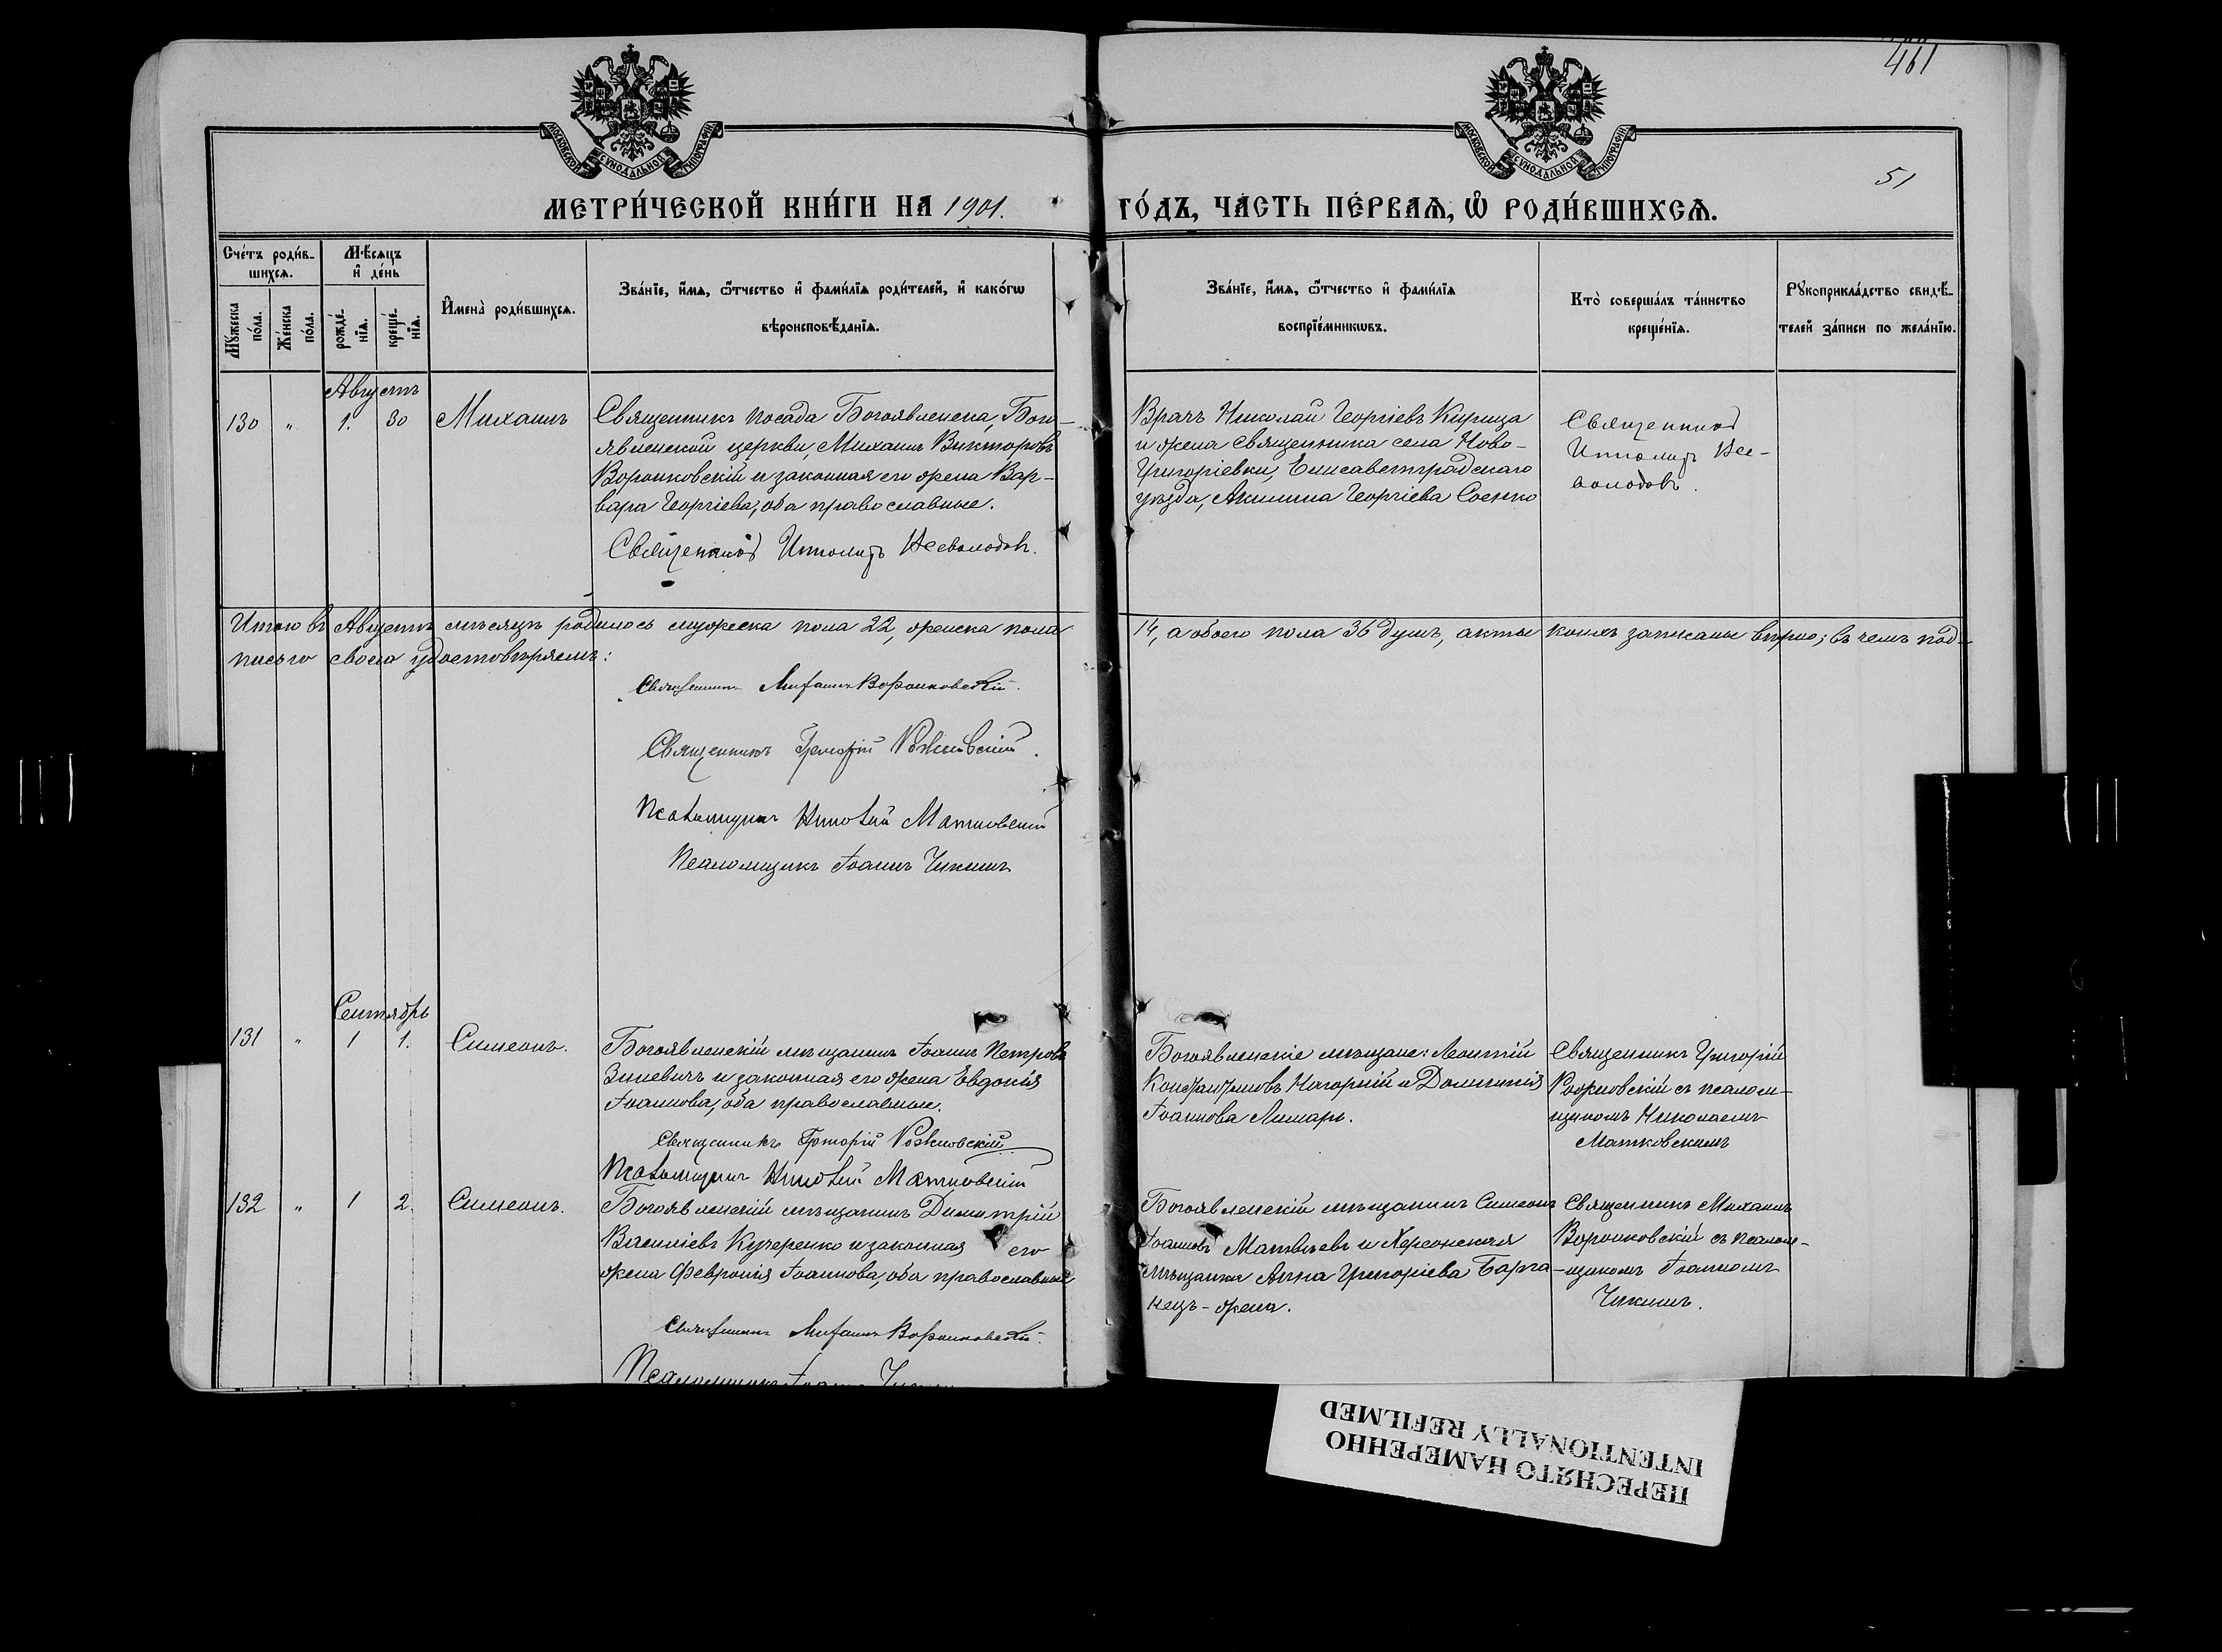 461
51
МОСКОВСКОЙ СѴНОДАЛЬНОЙ ТИПОГРАФІИ
МОСКОВСКОЙ СѴНОДАЛЬНОЙ ТИПОГРАФІИ
МЕТРИ́ЧЕСКОЙ КНИ́ГИ НА 1901.
ГО́ДЪ, ЧА́СТЬ ПЕ́РВАѦ, Ѽ РОДИ́ВШИХСѦ.
Сче́тъ роди́в-
шихсѧ.
Мꙋ́жеска
по́ла.
Же́нска
по́ла.
Мѣ́сѧцъ
и҆ де́нь
рожде́-
нїѧ.
креще́-
нїѧ.
И҆мена̀ роди́вшихсѧ.
Зва́нїе, и҆́мѧ, ѻ҆́тчество и҆ фами́лїѧ роди́телей, и҆ како́гѡ
вѣроисповѣ́данїѧ.
Зва́нїе, и҆́мѧ, ѻ҆́тчество и҆ фами́лїѧ
воспрїе́мникѡвъ.
Кто̀ соверша́лъ та́инство
креще́нїѧ.
Рꙋкоприкла́дство свидѣ́-
телей за́писи по жела́нїю.
Августъ
130 " 1. 30 Михаилъ
Священникъ посада Богоявленска, Бого-
явленской церкви, Михаилъ Викторовъ
Воронковскій и законная его жена Вар-
вара Георгіева, оба православные.
Священникъ Ипполитъ Всеволодовъ.
Врачъ Николай Георгіевъ Кирица
и жена священника села Ново-
Григоріевки, Елисаветградскаго
уѣзда, Акилина Георгіева Соенко
Священникъ
Ипполитъ Все-
володовъ.
Итого въ Августѣ мѣсяцѣ родилось мужеска пола 22, женска пола
14, а обоего пола 36 душъ, акты коихъ записаны вѣрно; въ чемъ под-
писью своею удостовѣряемъ:
Священникъ Михаилъ Воронковскій.
Священникъ Григорій Рожновскій.
Псаломщикъ Николай Матковскій
Псаломщикъ Іоаннъ Чикинъ
Сентябрь
131 " 1 1. Симеонъ.
Богоявленскій мѣщанинъ Іоаннъ Петровъ
Зиневичъ и законная его жена Евдокія
Іоаннова, оба православные.
Священникъ Григорій Рожновскій
Псаломщикъ Николай Матковскій
Богоявленскіе мѣщане: Леонтій
Константиновъ Нагорній и Домникія
Іоаннова Лимарь.
Священникъ Григорій
Рожновскій съ псалом-
щикомъ Николаемъ
Матковскимъ
132 " 1 2. Симеонъ.
Богоявленскій мѣщанинъ Димитрій
Василіевъ Кучеренко и законная его
жена Февронія Іоаннова, оба православные
Священникъ Михаилъ Воронковскій.
Псаломщикъ Іоаннъ
Богоявленскій мѣщанинъ Симеонъ
Іоанновъ Матвѣевъ и Херсонская
мѣщанка Анна Григоріева Барга-
нецъ-жена.
Священникъ Михаилъ
Воронковскій съ псалом-
щикомъ Іоанномъ
Чикинъ.
ПЕРЕСНЯТО НАМЕРЕННО
INTENTIONALLY REFILMED